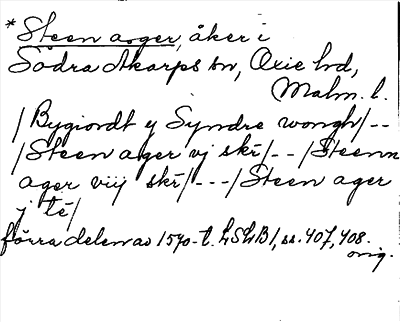 *Steen ager, åker i
Södra Åkarps sn, Oxie hd,
Malm. l.
/Bygiordt y Syndre wongh/--
/Steen ager vj skr/--/Steenn
ager viij skr/---/Steen ager
j te/
förra delen av 1570-t. LSLB1, ss. 407, 408.
orig.